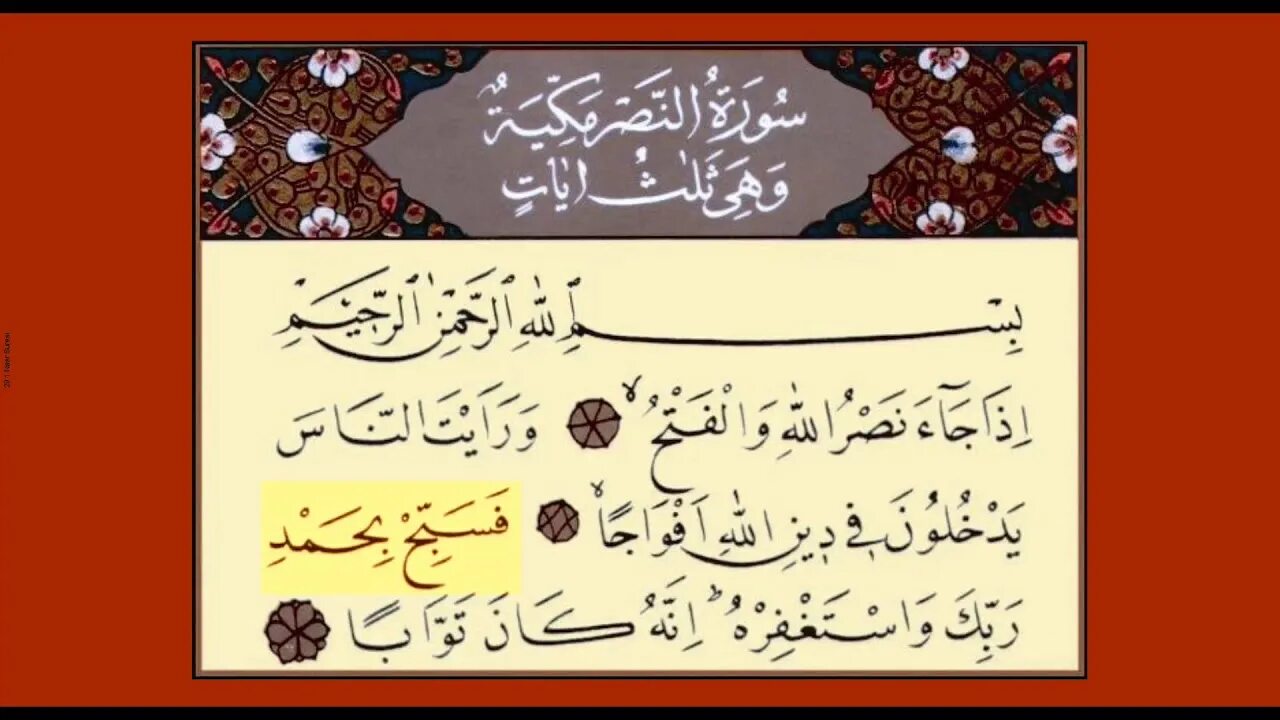 سُورَةُ النَّصْرِ مَكِّيَّةٌ
وَهِيَ ثَلٰثُ اٰيَاتٍ
بِسْمِ اللّٰهِ الرَّحْمٰنِ الرَّح۪يمِ
اِذَا جَٓاءَ نَصْرُ اللّٰهِ وَالْفَتْحُۙ وَرَاَيْتَ النَّاسَ
يَدْخُلُونَ ف۪ي د۪ينِ اللّٰهِ اَفْوَاجًاۙ فَسَبِّحْ بِحَمْدِ
رَبِّكَ وَاسْتَغْفِرْهُۜ اِنَّهُ كَانَ تَوَّابًا